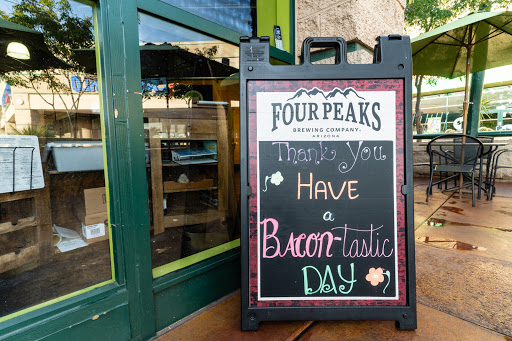 FOUR PEAKS
BREWING COMPANY
ARIZONA
Thank You
HAVE
a
BACON-tastic
DAY